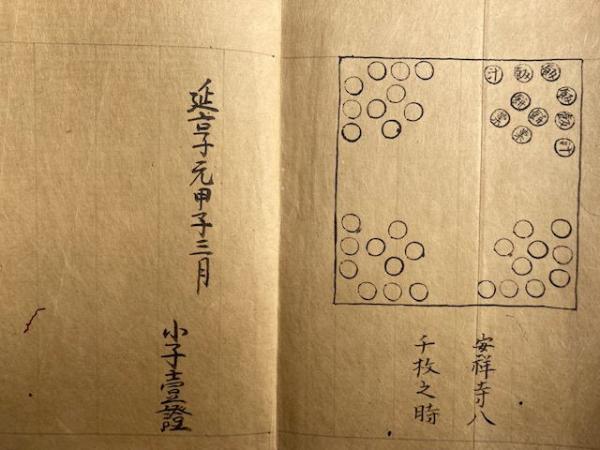 汁
汁
安祥寺八
千枚之時
延享元甲子三月
小子壹證